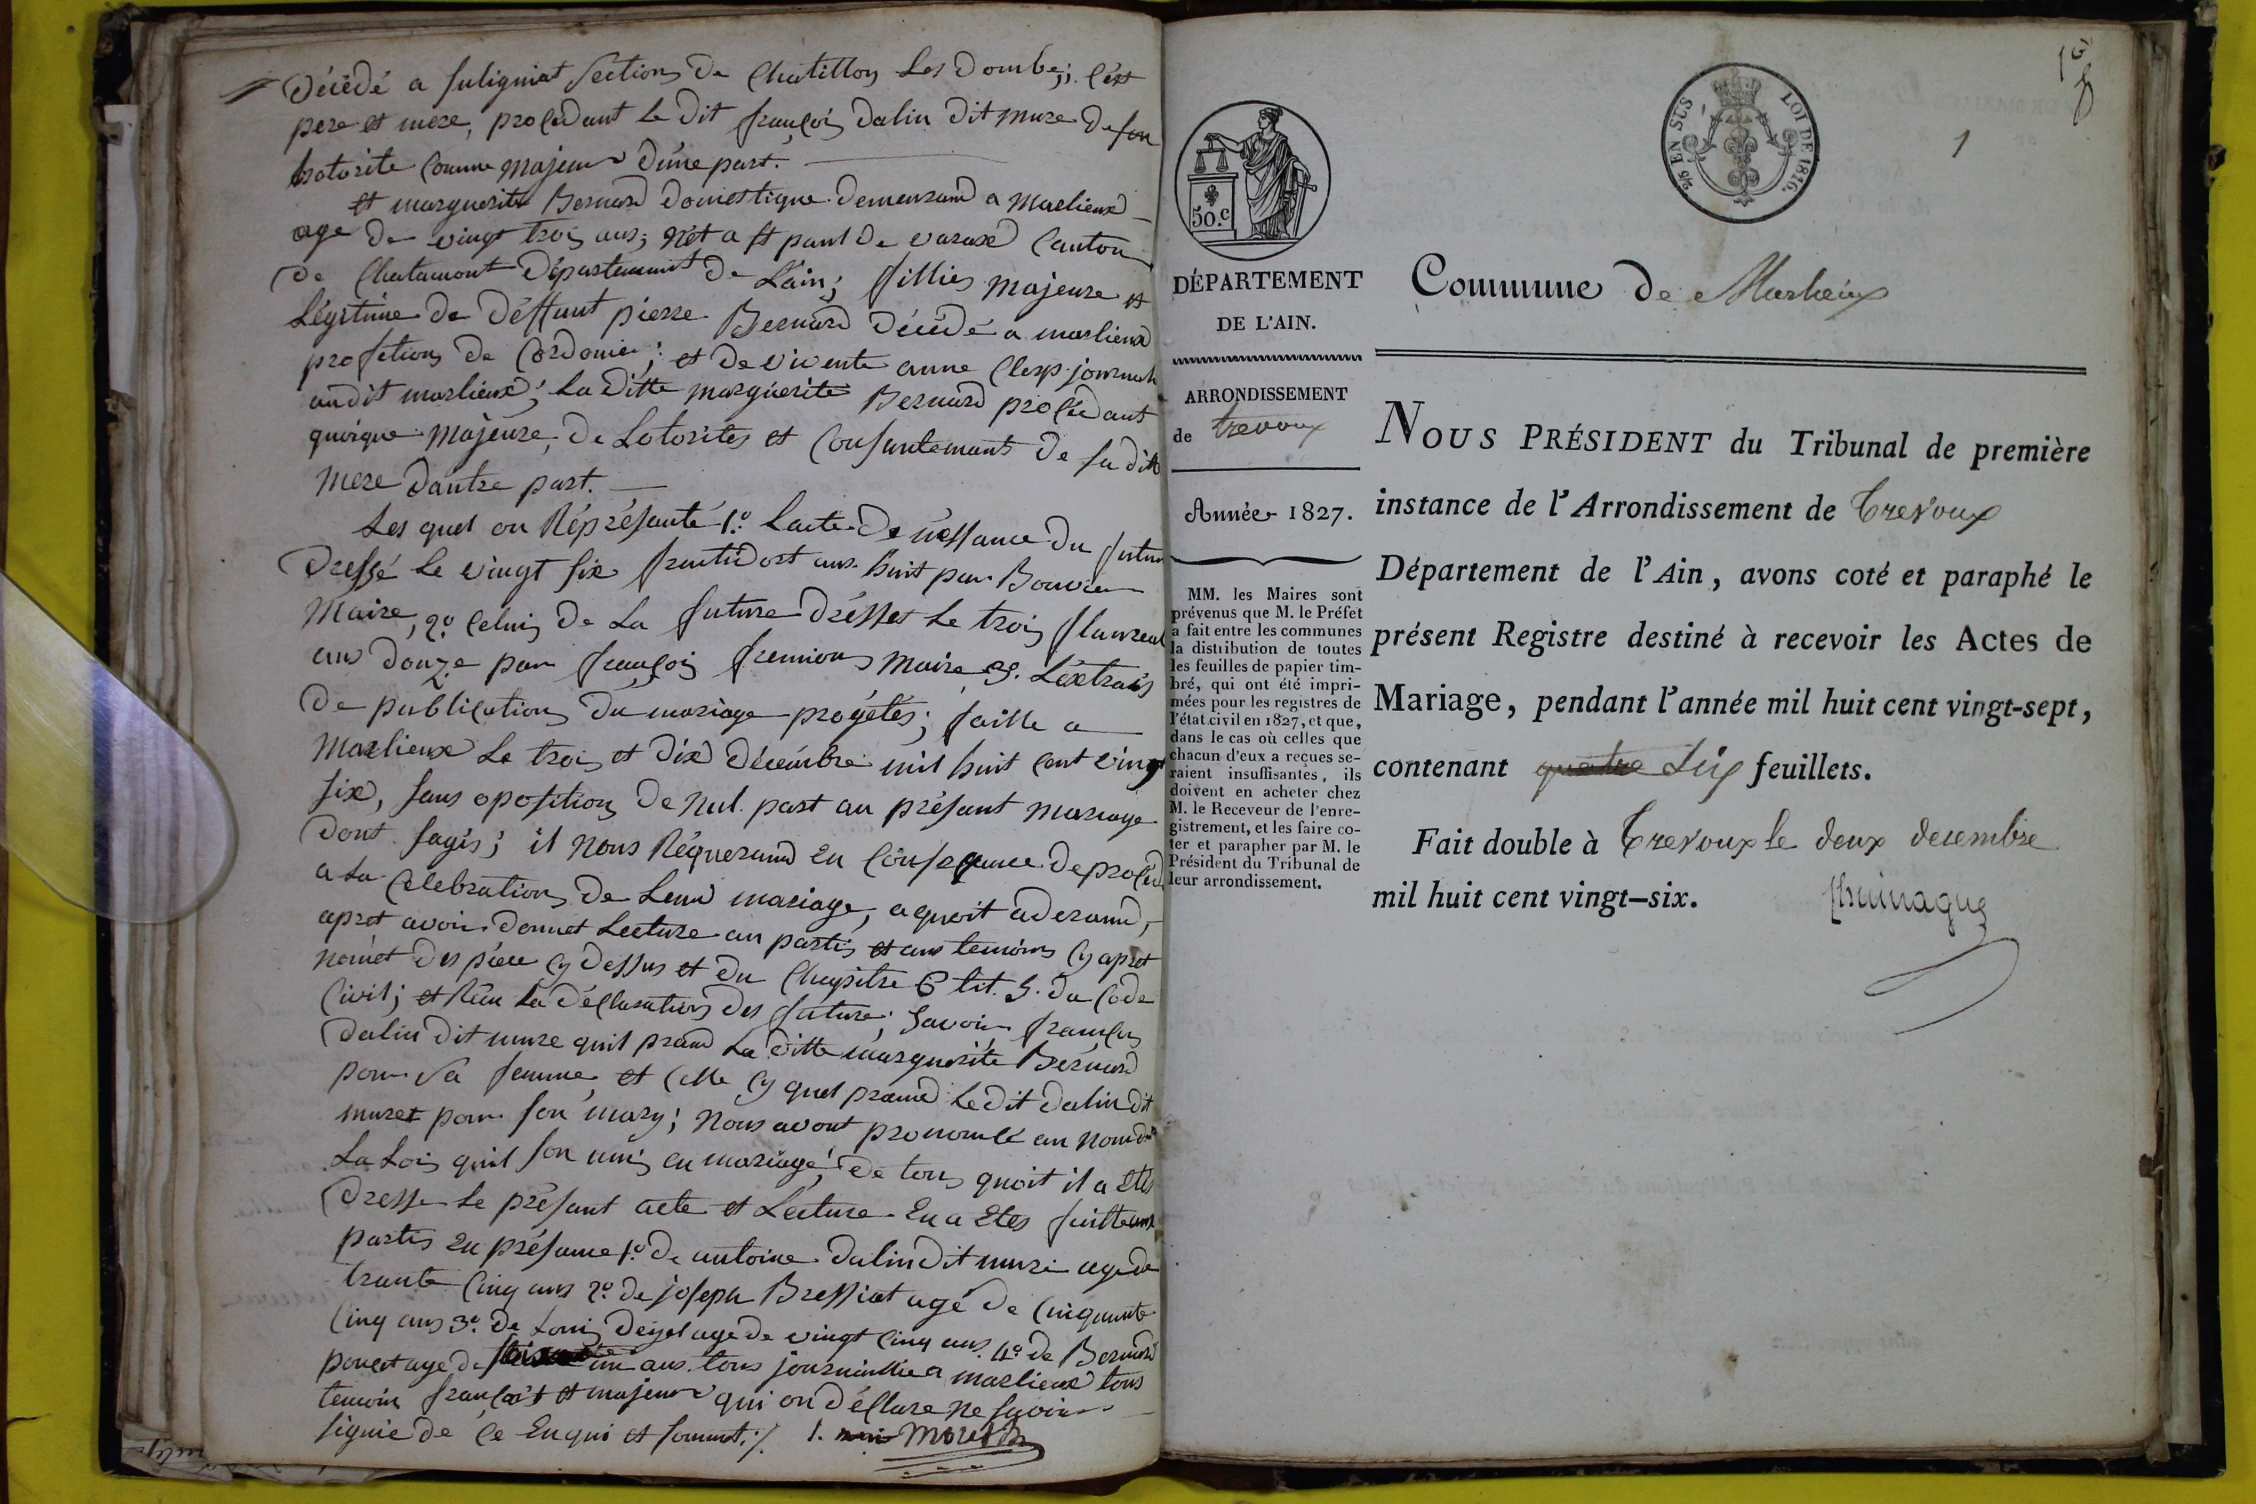 Décédé a suligniat section de Chatillon les dombe; Cest
pere et mere, procedant le dit françois dalin dit mure de son
hotorite comme majeur d'une part.
et marguerite Bernard domestique demeurand a Marlieux
age de vingt trois ans; nét a st paul de varax Canton
de Chatamont département de L'ain; fillies majeure et
Légitime de déffunt pierre Bernard décédé a marlieux
profetion de Cordonier; et de vivente anne Clerp journal
audit marlieux; La ditte marguerite Bernard procédant
quoique majeure, de Lotorites et Consantemant de sa ditte
mere dautre part.
Les quel on Réprésanté 1.o Lacte de néssance du futur
dressé le vingt six fruitidort ans huit par Bouvier
Maire, 2.o Celui de La future drésser le trois flaureal
an douze par françois fremion maire 3.o Léxtrais
de publication du mariage progétés; faille a
Marlieux Le trois et dix décémbre mil huit cent vingt
six, sans oposition de nul part au présant mariage
dont sagis; il nous Réquerand en Consequance de procéd
a La Celebration de Leur mariage, a quoit aderand,
apret avoir donnet Lecture au partis et aux temoins Cy apret
nomét des piéce Cy dessus et du Chapitre 6 tit. 5. du Code
Civil; et Réu La déclaration des future; Savoir françois
dalin dit mure quil prand La ditte marguerite Bernard
pour sa femme, et Celle Cy quel prand Le dit dalin dit
muret pour son mary; nous avont prononcé au nom de
La Loi quil son unis en mariage, de tous quoit il a étés
dresse Le présant acte et Lecture En a Etes faitte aux
partis En présance 1.o de antoine dalin dit mure age de
trante Cinq ans 2.o de joseph Bressiat agé de Cinquante
Cinq ans 3.o de Louis age de vingt Cinq ans 4.o de Bernard
age de un ans tous journallie a marlieux tous
temoin françois et majeur qui on déclare ne savoir
signié de Ce Enquis et sommet ./. Moret
50.c
DÉPARTEMENT
DE L'AIN.
ARRONDISSEMENT
de trevoux
Année 1827.
MM. les Maires sont
prévenus que M. le Préfet
a fait entre les communes
la distribution de toutes
les feuilles de papier tim-
bré, qui ont été impri-
mées pour les registres de
l'état civil en 1827, et que,
dans le cas où celles que
chacun d'eux a reçues se-
raient insuffisantes, ils
doivent en acheter chez
M. le Receveur de l'enre-
gistrement, et les faire co-
ter et parapher par M. le
Président du Tribunal de
leur arrondissement.
2/5 EN SUS LOI DE 1816.
1
Commune de Marlieux
NOUS PRÉSIDENT du Tribunal de première
instance de l'Arrondissement de Trevoux
Département de l'Ain, avons coté et paraphé le
présent Registre destiné à recevoir les Actes de
Mariage, pendant l'année mil huit cent vingt-sept,
contenant quatre Six feuillets.
Fait double à Trevoux le deux decembre
mil huit cent vingt-six.